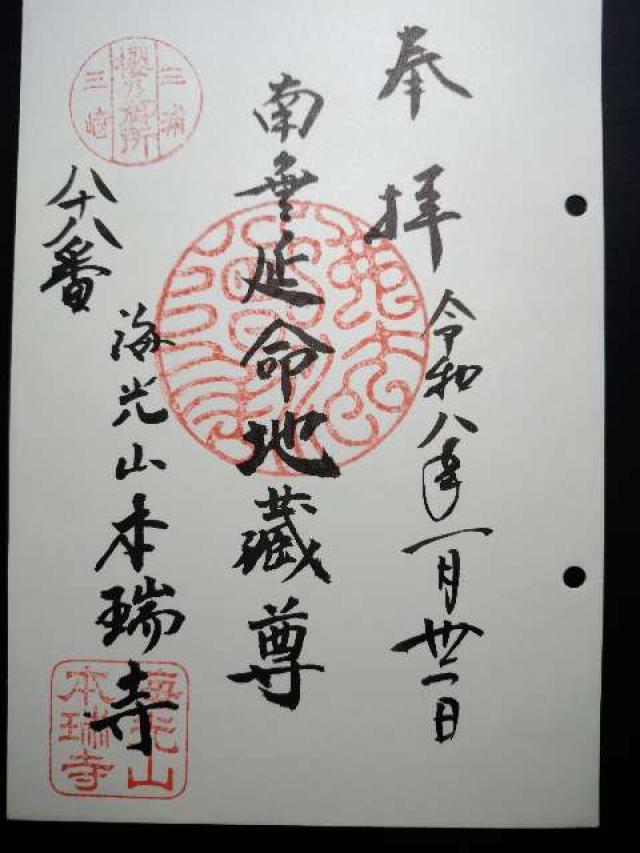 奉拝
令和八年一月廿一日
南無延命地蔵尊
海光山本瑞寺
八十八番
三浦
三崎
海光山
本瑞寺